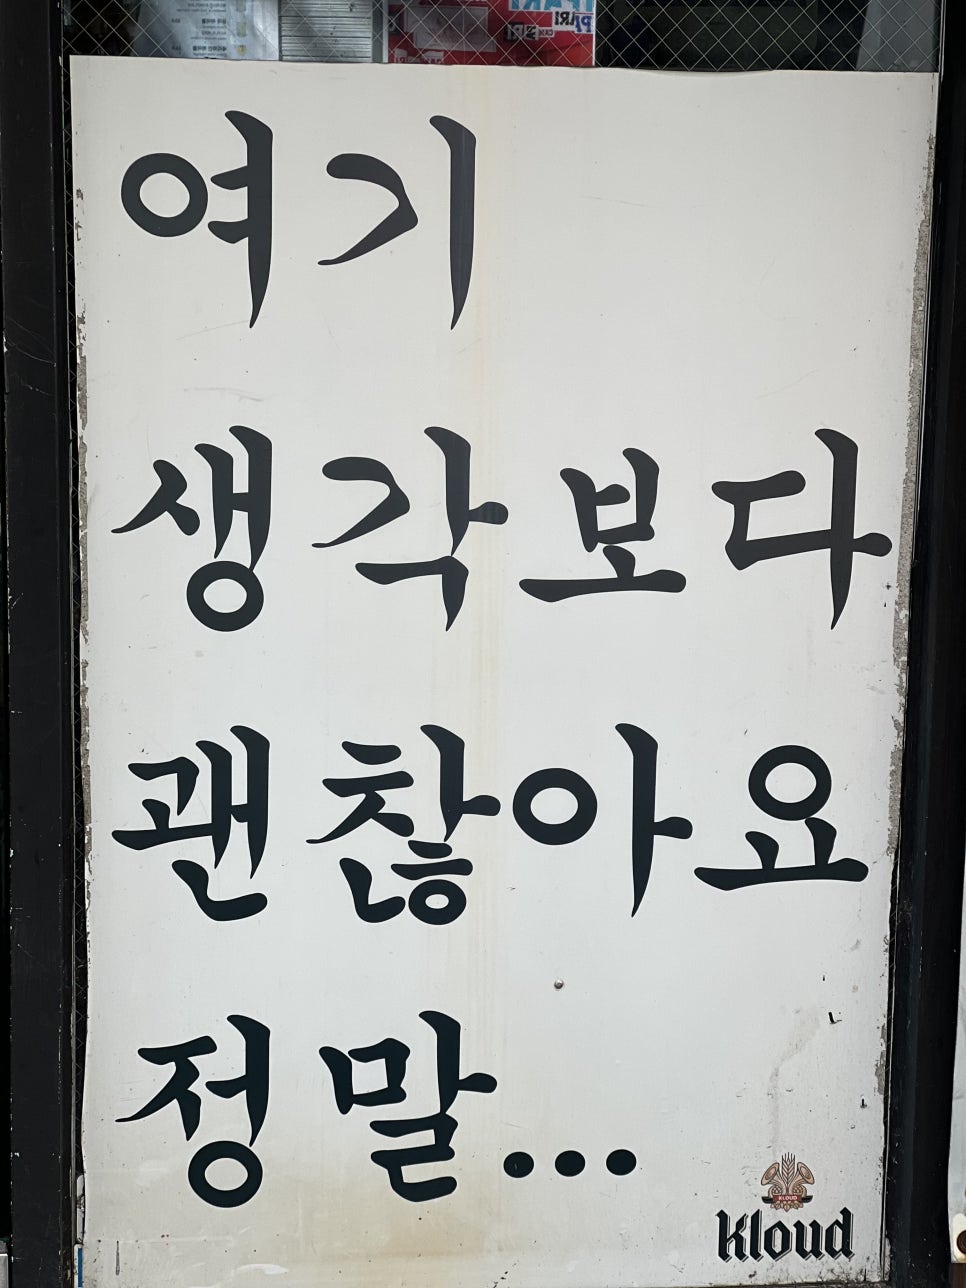 여기
생각보다
괜찮아요
정말...
KLOUD
Kloud